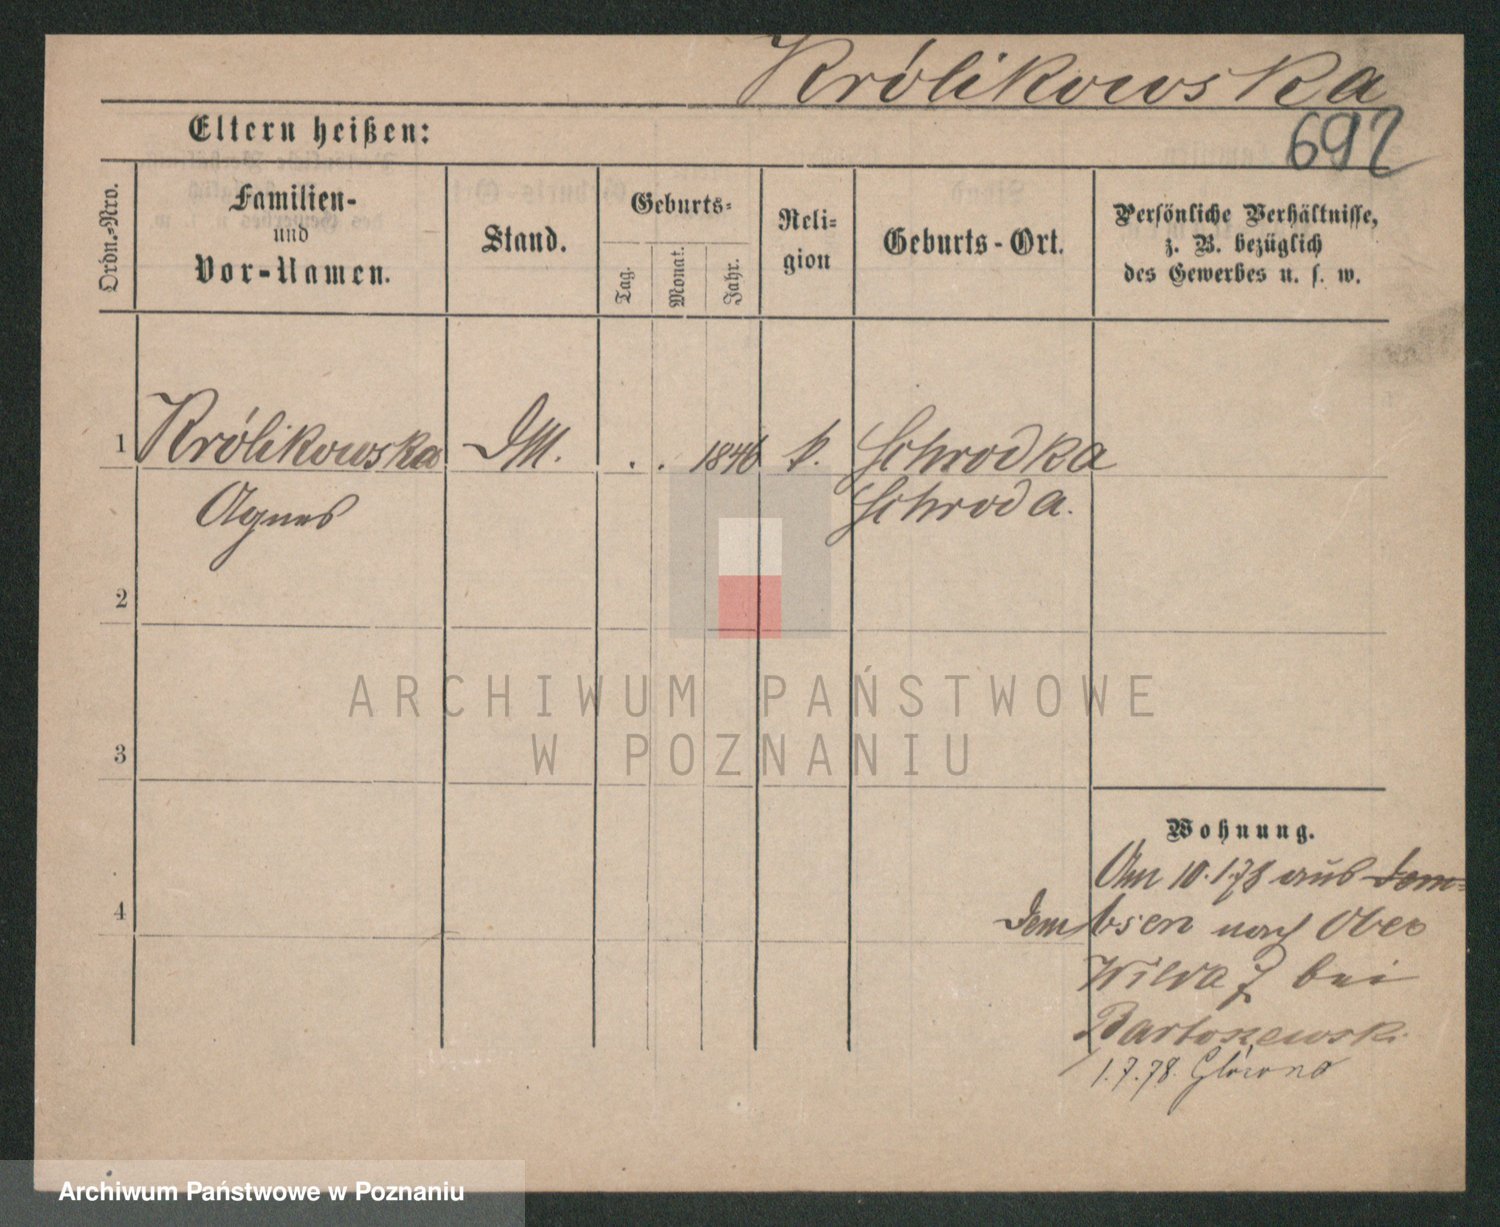 Królikowska
Eltern heißen:
692
Ordn.-Nro.
Familien-
und
Vor-Namen.
Stand.
Geburts-
Tag.
Monat.
Jahr.
Reli-
gion
Geburts-Ort.
Persönliche Verhältnisse,
z. B. bezüglich
des Gewerbes u. s. w.
1 Królikowska DM. . . 1846 k. Schrodka
Agnes Schroda.
2
3
4
ARCHIWUM PAŃSTWOWE
W POZNANIU
Wohnung.
Am 10.1.78 aus Dem-
Dembsen nach Ober
Wilda 7 bei
Bartoszewski
1.7.78. Główno
Archiwum Państwowe w Poznaniu